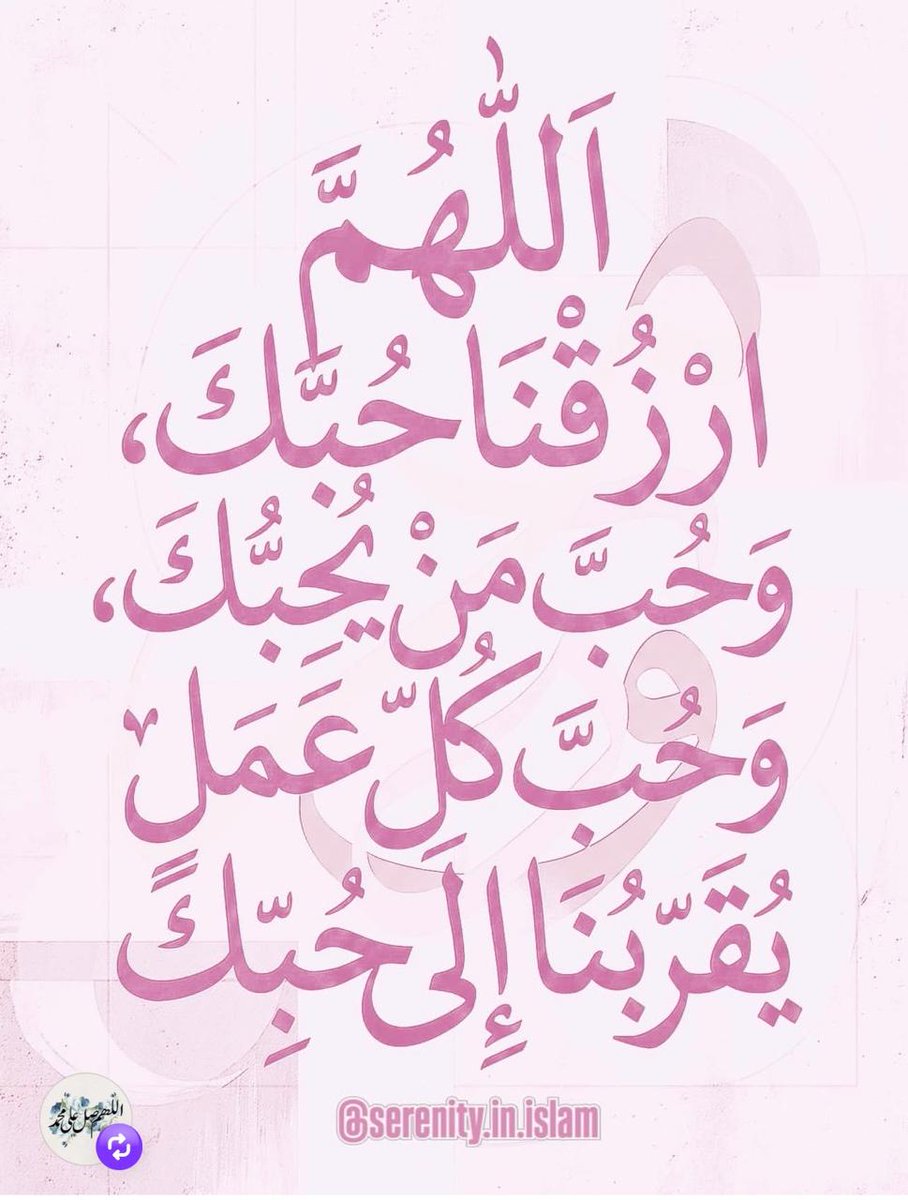 اَللّٰهُمَّ
ارْزُقْنَا حُبَّكَ،
وَحُبَّ مَنْ يُحِبُّكَ،
وَحُبَّ كُلِّ عَمَلٍ
يُقَرِّبُنَا إِلَى حُبِّكَ
@serenity.in.islam
اللهم صل على محمد